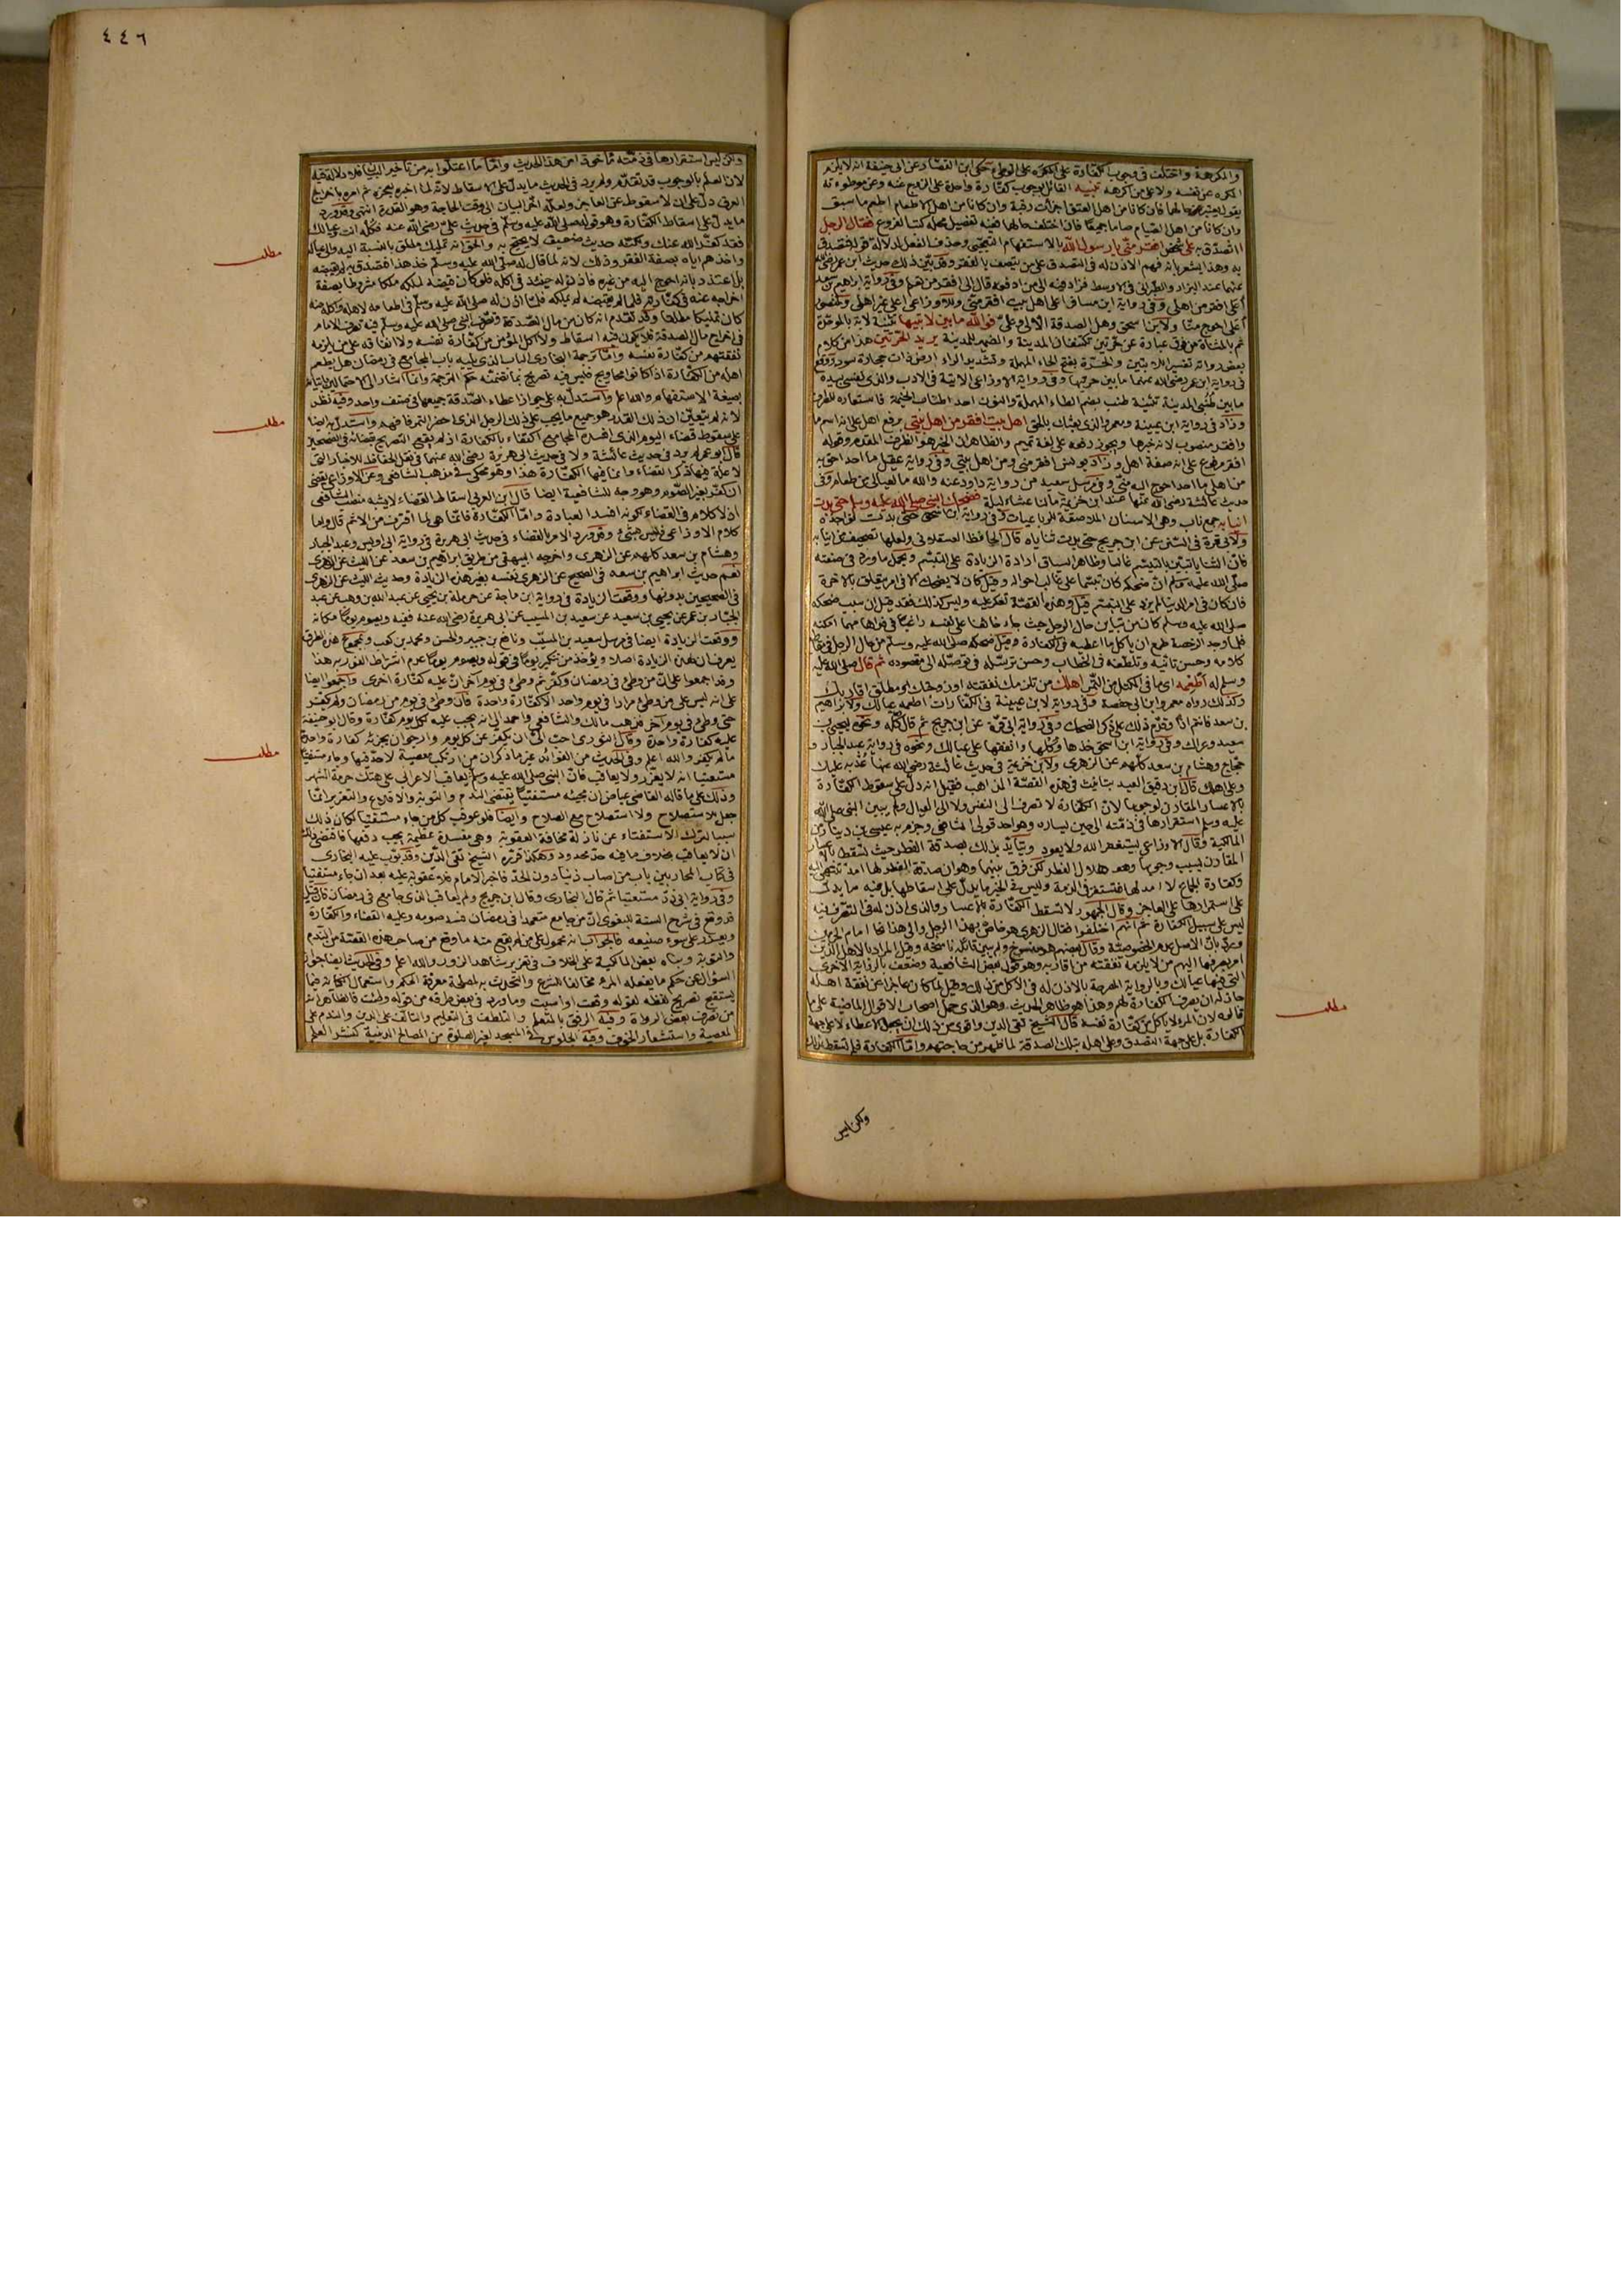 ٤٤٦
والمكرهة واختلف في وجوب الكفارة على المكره على الوطئ حكى ابن القصار عن ابي حنيفة انه لا يلزم
المكره عن نفسه ولا على من اكرهه تنبيه القائل بوجوب كفارة واحدة على الزوج عنه وعن موطوءته
يقول يعتبر حالهما فان كانا من اهل العتق اجزأت رقبة وان كانا من اهل الاطعام اطعم ما سبق
وان كانا من اهل الصيام صاما جميعًا فان اختلف حالهما ففيه تفصيل محله كتب الفروع فقال الرجل
اتصدق به على شخص افقر منّي يا رسول الله بالاستفهام التعجبي وحذف الفعل لدلالة
به وهذا يشعر بانه فهم الاذن له في التصدق على من يتصف بالفقر وقد بيّن ذلك حديث ابن عمر رضي الله
عنهما عند البزار والطبراني في الاوسط فزاد فيه الى من ادفعه قال الى افقر من تعلم وفي رواية ابراهيم بن سعد
أعلى افقر من اهلي وفي رواية ابن مسافر اعلى اهل بيت افقر منّي وللاوزاعي اعلى غير اهلي ولمنصور
أعلى احوج منّا ولابن اسحق وهل الصدقة الا لي وعليّ فوالله ما بين لابتيها تثنية لابة بالموحّدة
ثم بالمثناة من فوق عبارة عن حرّتين تكتنفان المدينة والضمير للمدينة يريد الحرّتين هذا من كلام
بعض رواته تفسير اللابتين والحرّة بفتح الحاء المهملة وتشديد الراء ارض ذات حجارة سود ووقع
في رواية ابن عمر رضي الله عنهما ما بين حرتيها وفي رواية الاوزاعي الاتية في الادب والذي نفسي بيده
ما بين طُنُبَي المدينة تثنية طنب بضم الطاء المهملة والنون احد اطناب الخيمة فاستعاره للطرف
وزاد في رواية ابن عيينة ومعمر والذي بعثك بالحق اهل بيت افقر من اهل بيتي برفع اهل على انه اسم ما
وافقر منصوب لانه خبرها ويجوز رفعه على لغة تميم والظاهر ان الخبر هو الظرف المقدم وقوله
افقر مرفوع على انه صفة اهل وزاد يونس افقر مني ومن اهل بيتي وفي رواية عقيل ما احد احق به
من اهلي ما احد احوج اليه منّي وفي مرسل سعيد من رواية داود عنه والله ما لعيالي من طعام وفي
حديث عائشة رضي الله عنها عند ابن خزيمة مالنا عشاء ليلة فضحك النبي صلى الله عليه وسلم حتى بدت
انيابه جمع ناب وهي الاسنان الملاصقة للرباعيات وفي رواية ابن اسحق حتى بدت نواجذه
ولابي قرة في السنن عن ابن جريج حتى بدت ثناياه قال الحافظ العسقلاني ولعلها تصحيف من انيابه
فانّ الثنايا تتبيّن بالتبسّم غالبا وظاهر السياق ارادة الزيادة على التبسّم ويحمل ما ورد في صفته
صلّى الله عليه وسلم انّ ضحكه كان تبسّما على غالب احواله وقيل كان لا يضحك الا في امر يتعلق بالاخرة
فان كان في امر الدنيا لم يزد على التبسّم قيل وهذه القصّة تعكر عليه وليس كذلك فقد قيل ان سبب ضحكه
صلى الله عليه وسلم كان من تباين حال الرجل حيث جاء خائفا على نفسه راغبًا في فدائها مهما امكنه
فلما وجد الرخصة طمع ان ياكل ما اعطيه في الكفارة وقيل ضحكه صلى الله عليه وسلّم من حال الرجل في مقاطع
كلامه وحسن تأتيه وتلطفه في الخطاب وحسن توسّله في توصّله الى مقصوده ثم قال صلى الله عليه
وسلم له اَطْعِمْه اى ما في المكتل من التّمر اهلك من تلزمك نفقته او زوجتك او مطلق اقاربك
وكذلك رواه معمر وابن ابي حفصة وفي رواية لابن عيينة في الكفّارات اطعمه عيالك ولابراهيم
بن سعد فانتم اذًا وقدّم ذلك على ذكر الضحك وفي رواية ابي قرّة عن ابن جريج ثم قال كُلْه ونحوه ليحيى بن
سعيد وعراك وفي رواية ابن اسحق خذها وكُلها وانفقها على عيالك ونحوه في رواية عبد الجبار و
حجّاج وهشام بن سعد كلّهم عن الزهرى ولابن خزيمة في حديث عائشة رضي الله عنها عُدْ به عليك
وعلى اهلك قال ابن دقيق العيد تباينت في هذه القصّة المذاهب فقيل انه دل على سقوط الكفّارة
بالاعسار المقارن لوجوبها لانّ الكفّارة لا تصرف الى النفس ولا الى العيال ولم يبين النبي صلى الله
عليه وسلم استقرارها في ذمّته الى حين يساره وهو احد قولي الشافعي وجزم به عيسى بن دينار من
المالكية وقال الاوزاعي يستغفر الله ولا يعود ويتأيّد بذلك بصدقة الفطر حيث تسقط بالاعسار
المقارن لسبب وجوبها وهو هلال الفطر لكن فرق بينهما وهو ان صدقة الفطر لها امد تنتهي اليه
وكفارة الجماع لا امد لها فتستقر في الذمة وليس في الخبر ما يدلّ على اسقاطها بل فيه ما يدل
على استمرارها على العاجز وقال الجمهور لا تسقط الكفّارة بالاعسار والذي اذن له في التصرف فيه
ليس على سبيل الكفّارة ثم انهم اختلفوا فقال الزهرى هو خاصّ بهذا الرجل والى هذا نحا امام الحرمين
وردّ بانّ الاصل عدم الخصوصيّة وقال بعضهم هو منسوخ ولم يبين قائله ناسخه وقيل المراد بالاهل الذين
امر بصرفها اليهم من لا يلزمه نفقته من اقاربه وهو قول بعض الشافعية وضعف بالرواية الاخرى
التي فيها عيالك وبالرواية المصرحة بالاذن له في الاكل من ذلك وقيل لما كان عاجزا عن نفقة اهله
جاز له ان يصرف الكفارة لهم وهذا هو ظاهر الحديث وهو الذي حمل اصحاب الاقوال الماضية على ما
قالوه لان المرء لا ياكل من كفّارة نفسه قال الشيخ تقي الدين واقوى من ذلك ان يجعل الاعطاء لا على جهة
الكفارة بل على جهة التصدق وعلى اهله بتلك الصدقة لما ظهر من حاجتهم وامّا الكفارة فلم تسقط بذلك
مطلب
ولكن ليس
ولكن ليس استقرارها في ذمّته مأخوذا من هذا الحديث وامّا ما اعتلّوا به من تأخير البيان فلا دلالة فيه
لان العلم بالوجوب قد تقدّم ولم يرد في الحديث ما يدلّ على الاسقاط لانّه لما اخبره بعجزه ثم امره باخراج
العرق دلّ على ان لا سقوط عن العاجز ولعلّه اخّر البيان الى وقت الحاجة وهو القدرة انتهى وقد ورد
ما يدلّ على اسقاط الكفّارة وهو قوله صلى الله عليه وسلّم في حديث علي رضي الله عنه فكُلْه انت وعيالك
فقد كفّر الله عنك ولكنّه حديث ضعيف لا يحتج به والحق انه تمليك مطلق بالنسبة اليه والى عياله
واخذهم اياه بصفة الفقر وذلك لانه لما قال له صلّى الله عليه وسلّم خذ هذا فتصدق به لم يقبضه
بل اعتذر بانه احوج اليه من غيره فاذن له حينئذ في اكله فلو كان قبضه لملكه ملكا مشروطا بصفة
اخراجه عنه في كفّارته فلما لم يقبضه لم يملكه فلمّا اذن له صلى الله عليه وسلّم في اطعامه لاهله واكله منه
كان تمليكا مطلقا وقد تقدّم انه كان من مال الصّدقة وتصرّف النبي صلى الله عليه وسلم فيه تصرف الامام
في اخراج مال الصدقة فلا يكون فيه اسقاط ولا اكل المؤمن من كفّارة نفسه ولا انفاقه على من يلزمه
نفقتهم من كفّارة نفسه وامّا ترجمة البخارى الباب الذى يليه باب المجامع في رمضان هل يطعم
اهله من الكفّارة اذا كانوا محاويج فليس فيه تصريح بما تضمّنه حكم الترجمة وانما اشار الى الاحتمالين باتيانه
بصيغة الاستفهام والله اعلم واستدلّ به على جواز اعطاء الصّدقة جميعها في صنف واحد وفيه نظر
لانه لم يتعيّن ان ذلك القدر هو جميع ما يجب على ذلك الرجل الذى احضر التمر فافهم واستدلّ به ايضا
على سقوط قضاء اليوم الذي افسده المجامع اكتفاء بالكفارة اذ لم يقع التصريح بقضائه في الصّحيحين
قال ابو عمر لم يرد في حديث عائشة ولا في حديث ابي هريرة رضي الله عنهما في نقل الحفاظ للاخبار التي
لا علة فيها ذكر القضاء وانما فيها الكفّارة هذا وهو محكي في مذهب الشافعي وعن الاوزاعي يقضي
ان كفّر بغير الصّوم وهو وجه للشافعية ايضا قال ابن العربي اسقاط القضاء لا يشبه منصب الشافعي
اذ لا كلام في القضاء لكونه افسد العبادة وامّا الكفّارة فانّما هي لما اقترف من الاثم قال واما
كلام الاوزاعي فليس بشيء وقد ورد الامر بالقضاء في حديث ابي هريرة في رواية ابي اويس وعبد الجبار
وهشام بن سعد كلهم عن الزهرى واخرجه البيهقي من طريق ابراهيم بن سعد عن الليث عن الزهرى
نعم حديث ابراهيم بن سعد في الصحيح عن الزهرى نفسه بغير هذه الزيادة وحديث الليث عن الزهرى
في الصحيحين بدونها ووقعت الزيادة في رواية ابن ماجة عن حرملة بن يحيى عن عبد الله بن وهب عن عبد
الجبّار بن عمر عن يحيى بن سعيد عن سعيد بن المسيب عن ابي هريرة رضي الله عنه ففيه ويصوم يومًا مكانه
ووقعت الزيادة ايضا في مرسل سعيد بن المسيّب ونافع بن جبير والحسن ومحمد بن كعب وبمجموع هذه الطرق
يعرف ان لهذه الزيادة اصلا ويؤخذ من تنكير يومًا في قوله ويصوم يومًا عدم اشتراط الفوريه هذا
وقد اجمعوا على انّ من وطئ في رمضان وكفّر ثم وطئ في يوم اخر انّ عليه كفّارة اخرى واجمعوا ايضا
على انه ليس على من وطئ مرارا في يوم واحد الا كفّارة واحدة فان وطئ في يوم من رمضان ولم يكفّر
حتى وطئ في يوم آخر فذهب مالك والشافعي واحمد الى انه يجب عليه لكل يوم كفارة وقال ابو حنيفة
عليه كفارة واحدة وقال الثوري احب اليّ ان يكفر عن كل يوم وارجو ان يجزئه كفارة واحدة
ما لم يكفر والله اعلم وفي الحديث من الفوائد غير ما ذكر ان من ارتكب معصية لا حدّ فيها وجاء مستفتيًا
مستعتبا انه لا يعزّر ولا يعاقب فانّ النبي صلى الله عليه وسلّم لم يعاقب الاعرابي على هتك حرمة الشهر
وذلك على ما قاله القاضي عياض ان مجيئه مستفتيًا يقتضي الندم والتوبة والاقلاع والتعزير انّما
جعل للاستصلاح ولا استصلاح مع الصلاح وايضا فلو عوقب كل من جاء مستفتيًا لكان ذلك
سببا لترك الاستفتاء عن نازلة مخافة العقوبة وهي مفسدة عظيمة يجب دفعها فاقتضى ذلك
ان لا يعاقب بخلاف ما فيه حدّ محدود وهكذا قرّره الشيخ تقي الدّين وقد بوّب عليه البخارى
في كتاب المحاربين باب من اصاب ذنبًا دون الحدّ فاخبر الامام فلا عقوبة عليه بعد ان جاء مستفتيا
وفي رواية ابي ذرّ مستعتبا ثم قال البخارى وقال ابن جريج ولم يعاقب الذى جامع في رمضان فان قيل
قد وقع في شرح السنة للبغوى انّ من جامع متعمدا في رمضان فسد صومه وعليه القضاء والكفّارة
ويعزّر على سوء صنيعه فالجواب انه محمول على من لم يقع منه ما وقع من صاحب هذه القصّة من الندم
والتوبة وبناه بعض المالكية على الخلاف في تعزير شاهد الزور والله اعلم وفي الحديث ايضا جواز
السؤال عن حكم ما يفعله المرء مخالفا للشرع والتحدّث به لمصلحة معرفة الحكم واستعمال الكناية فيما
يستقبح تصريح لفظه لقوله وقعت او اصبت وما ورد في بعض طرقه من قوله وطئت فالظاهر انه
من تصرف بعض الرواة وفيه الرفق بالمتعلّم والتلطف في التعليم والتألف على الدين والندم على
المعصية واستشعار الخوف وفيه الجلوس في المسجد لغير الصلوة من المصالح الدينية كنشر العلم
مطلب
مطلب
مطلب